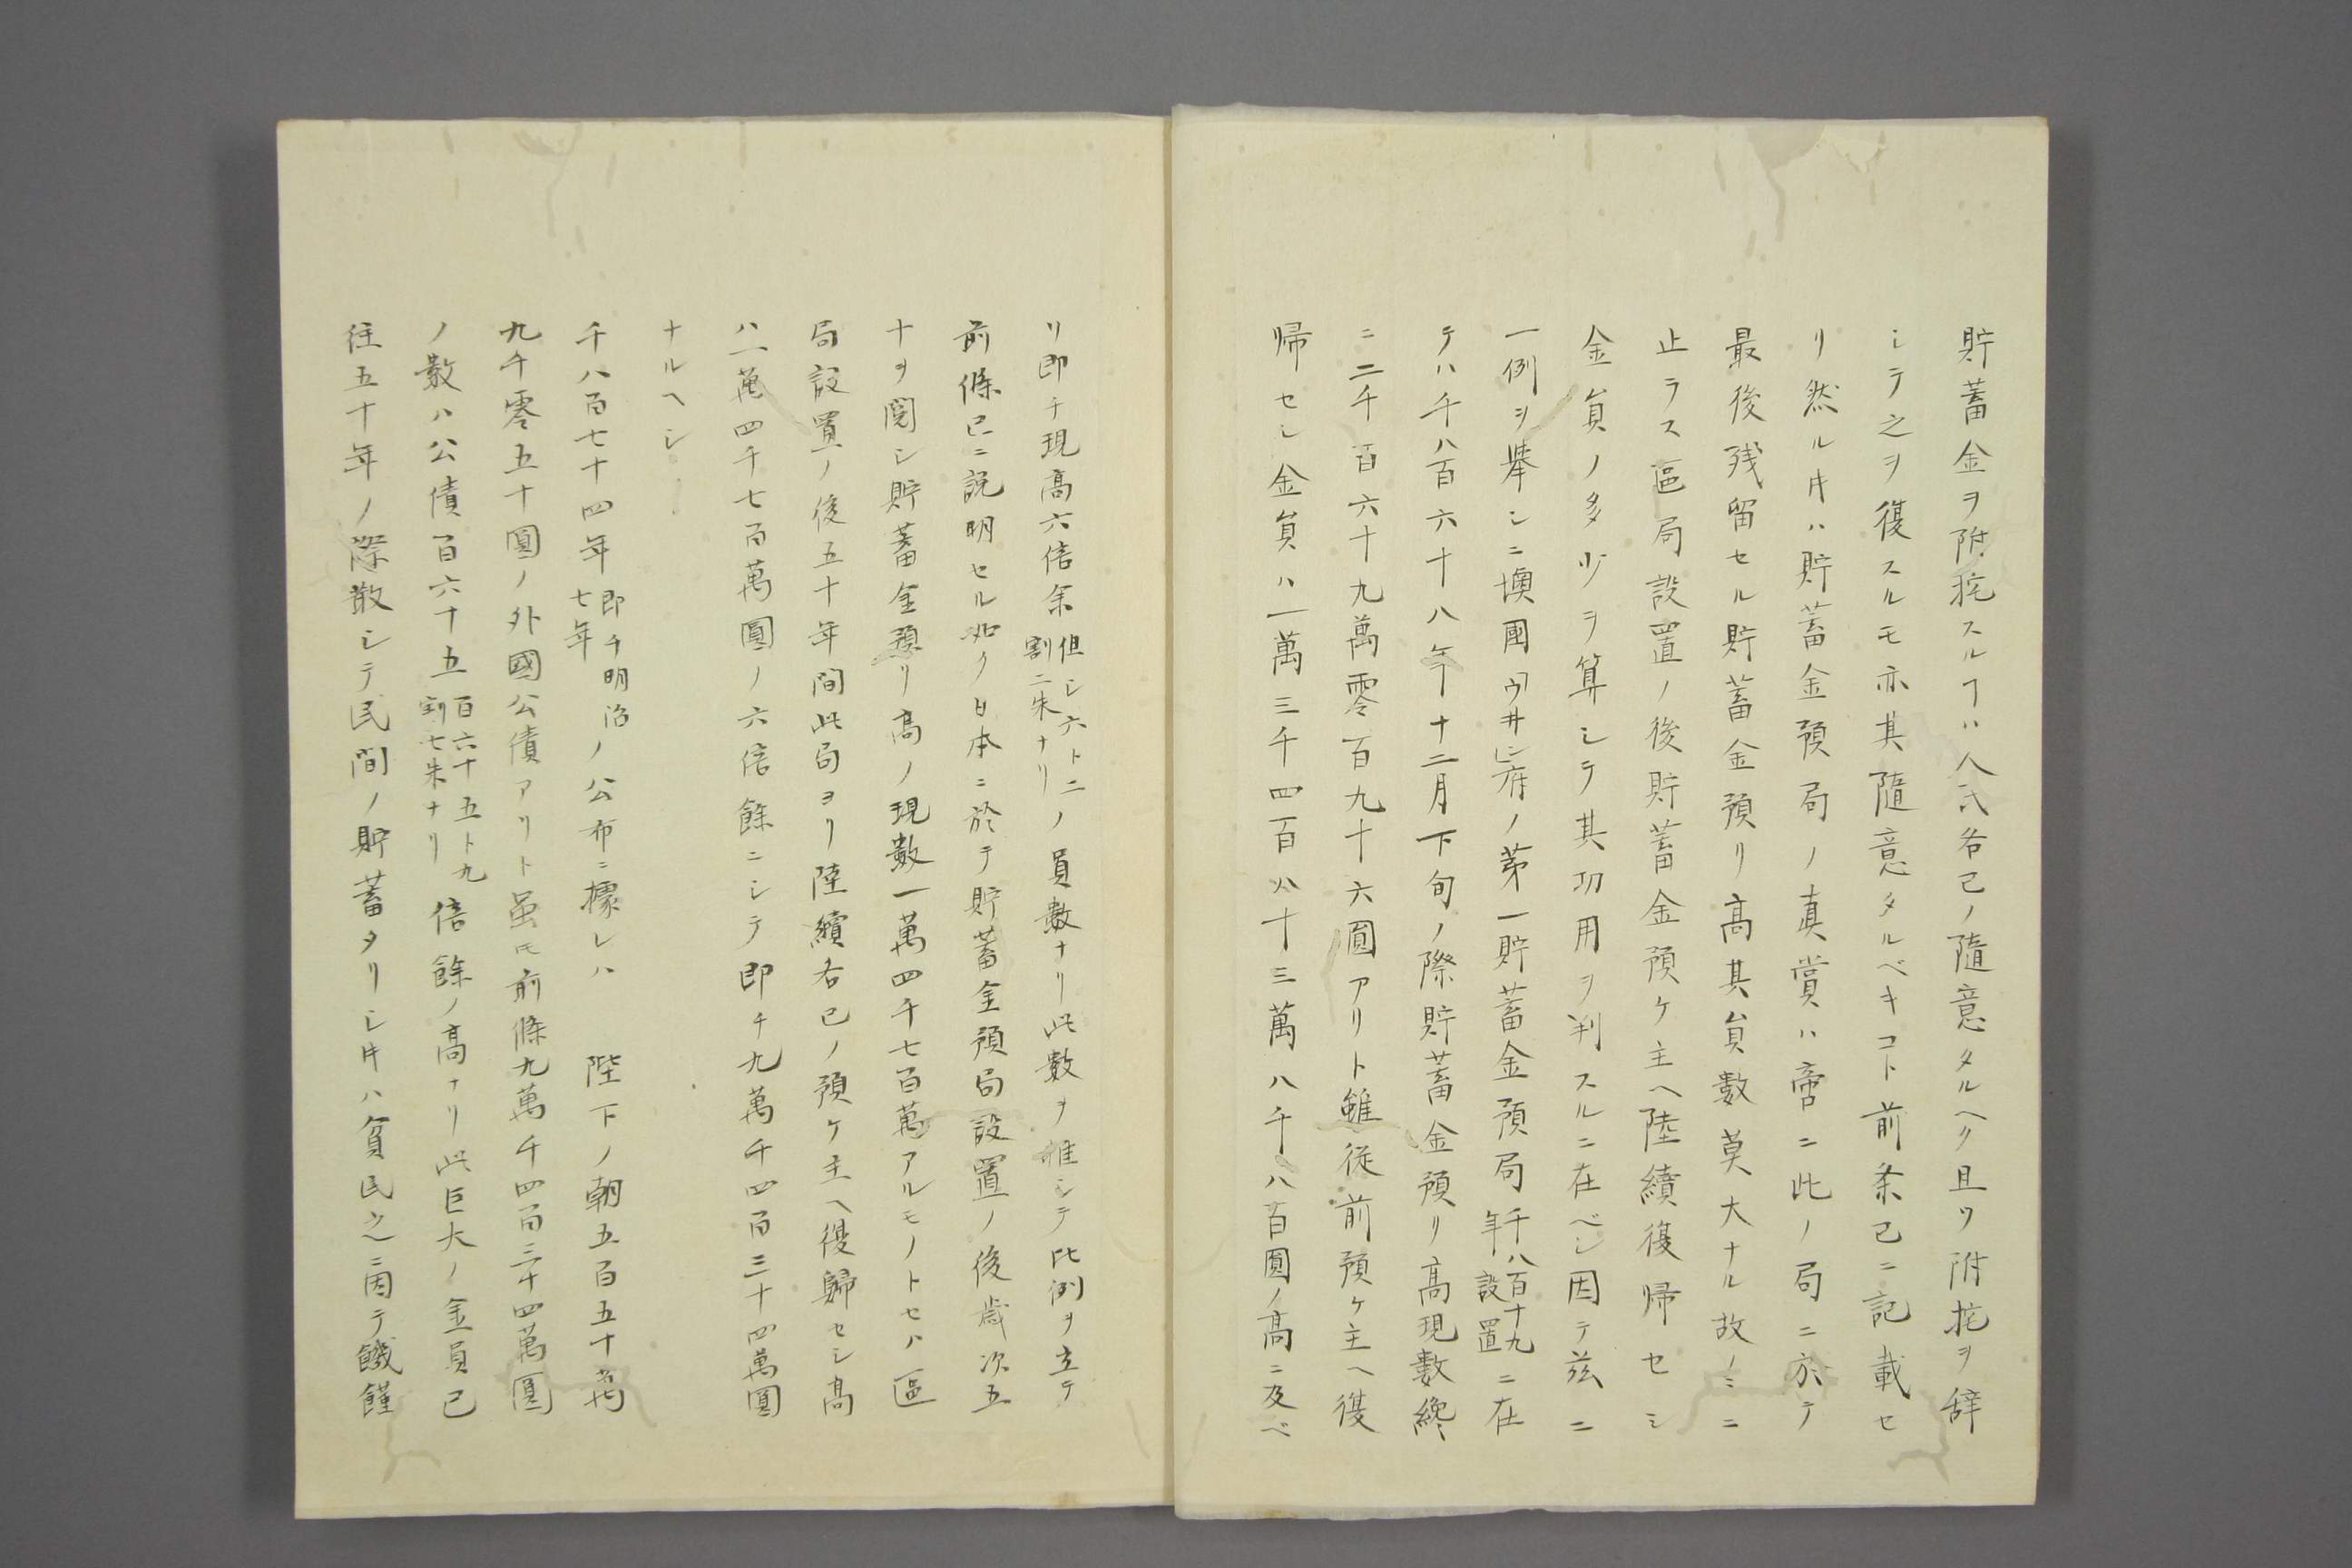 貯蓄金ヲ附托スルヿハ人民各己ノ隨意タルヘク且ツ附托ヲ辞
シテ之ヲ復スルモ亦其隨意タルベキコト前条已ニ記載セ
リ然ルキハ貯蓄金預局ノ真賞ハ啻ニ此ノ局ニ於テ
最後残留セル貯蓄金預リ高其員數莫大ナル故ノミニ
止ラス區局設置ノ後貯蓄金預ケ主ヘ陸續復帰セシ
金員ノ多少ヲ算シテ其功用ヲ判スルニ在ベシ因テ茲ニ
一例ヲ擧シニ墺國ウ井ン府ノ第一貯蓄金預局千八百十九年設置ニ在
テハ千八百六十八年十二月下旬ノ際貯蓄金預リ高現數纔
ニ二千百六十九萬零百九十六圓アリト雖従前預ケ主ヘ復
帰セシ金員ハ一萬三千四百八十三萬八千八百圓ノ高ニ及ベ
リ即チ現高六倍余但シ六ト二割二朱ナリノ員數ナリ此數ヲ推シテ比例ヲ立テ
前條已ニ説明セル如ク日本ニ於テ貯蓄金預局設置ノ後歳次五
十ヲ閲シ貯蓄金預リ高ノ現數一萬四千七百萬アルモノトセハ區
局設置ノ後五十年間此局ヨリ陸續各已ノ預ケ主ヘ復歸セシ高
ハ一萬四千七百萬圓ノ六倍餘ニシテ即チ九萬千四百三十四萬圓
ナルヘシ
千八百七十四年即チ明治七年ノ公布ニ據レハ 陛下ノ朝五百五十萬
九千零五十圓ノ外國公債アリト虽𪜈前條九萬千四百三十四萬圓
ノ數ハ公債百六十五百六十五ト九割七朱ナリ倍餘ノ高ナリ此巨大ノ金員已
往五十年ノ際散シテ民間ノ貯蓄タリシキハ貧民之ニ因テ饑饉